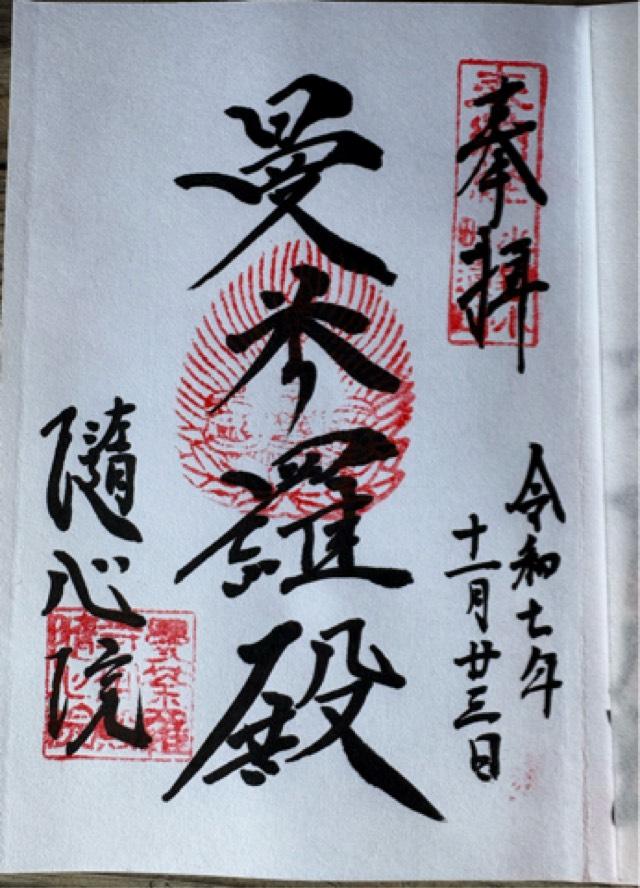 奉拝
令和七年
十一月廿三日
曼荼羅殿
隨心院